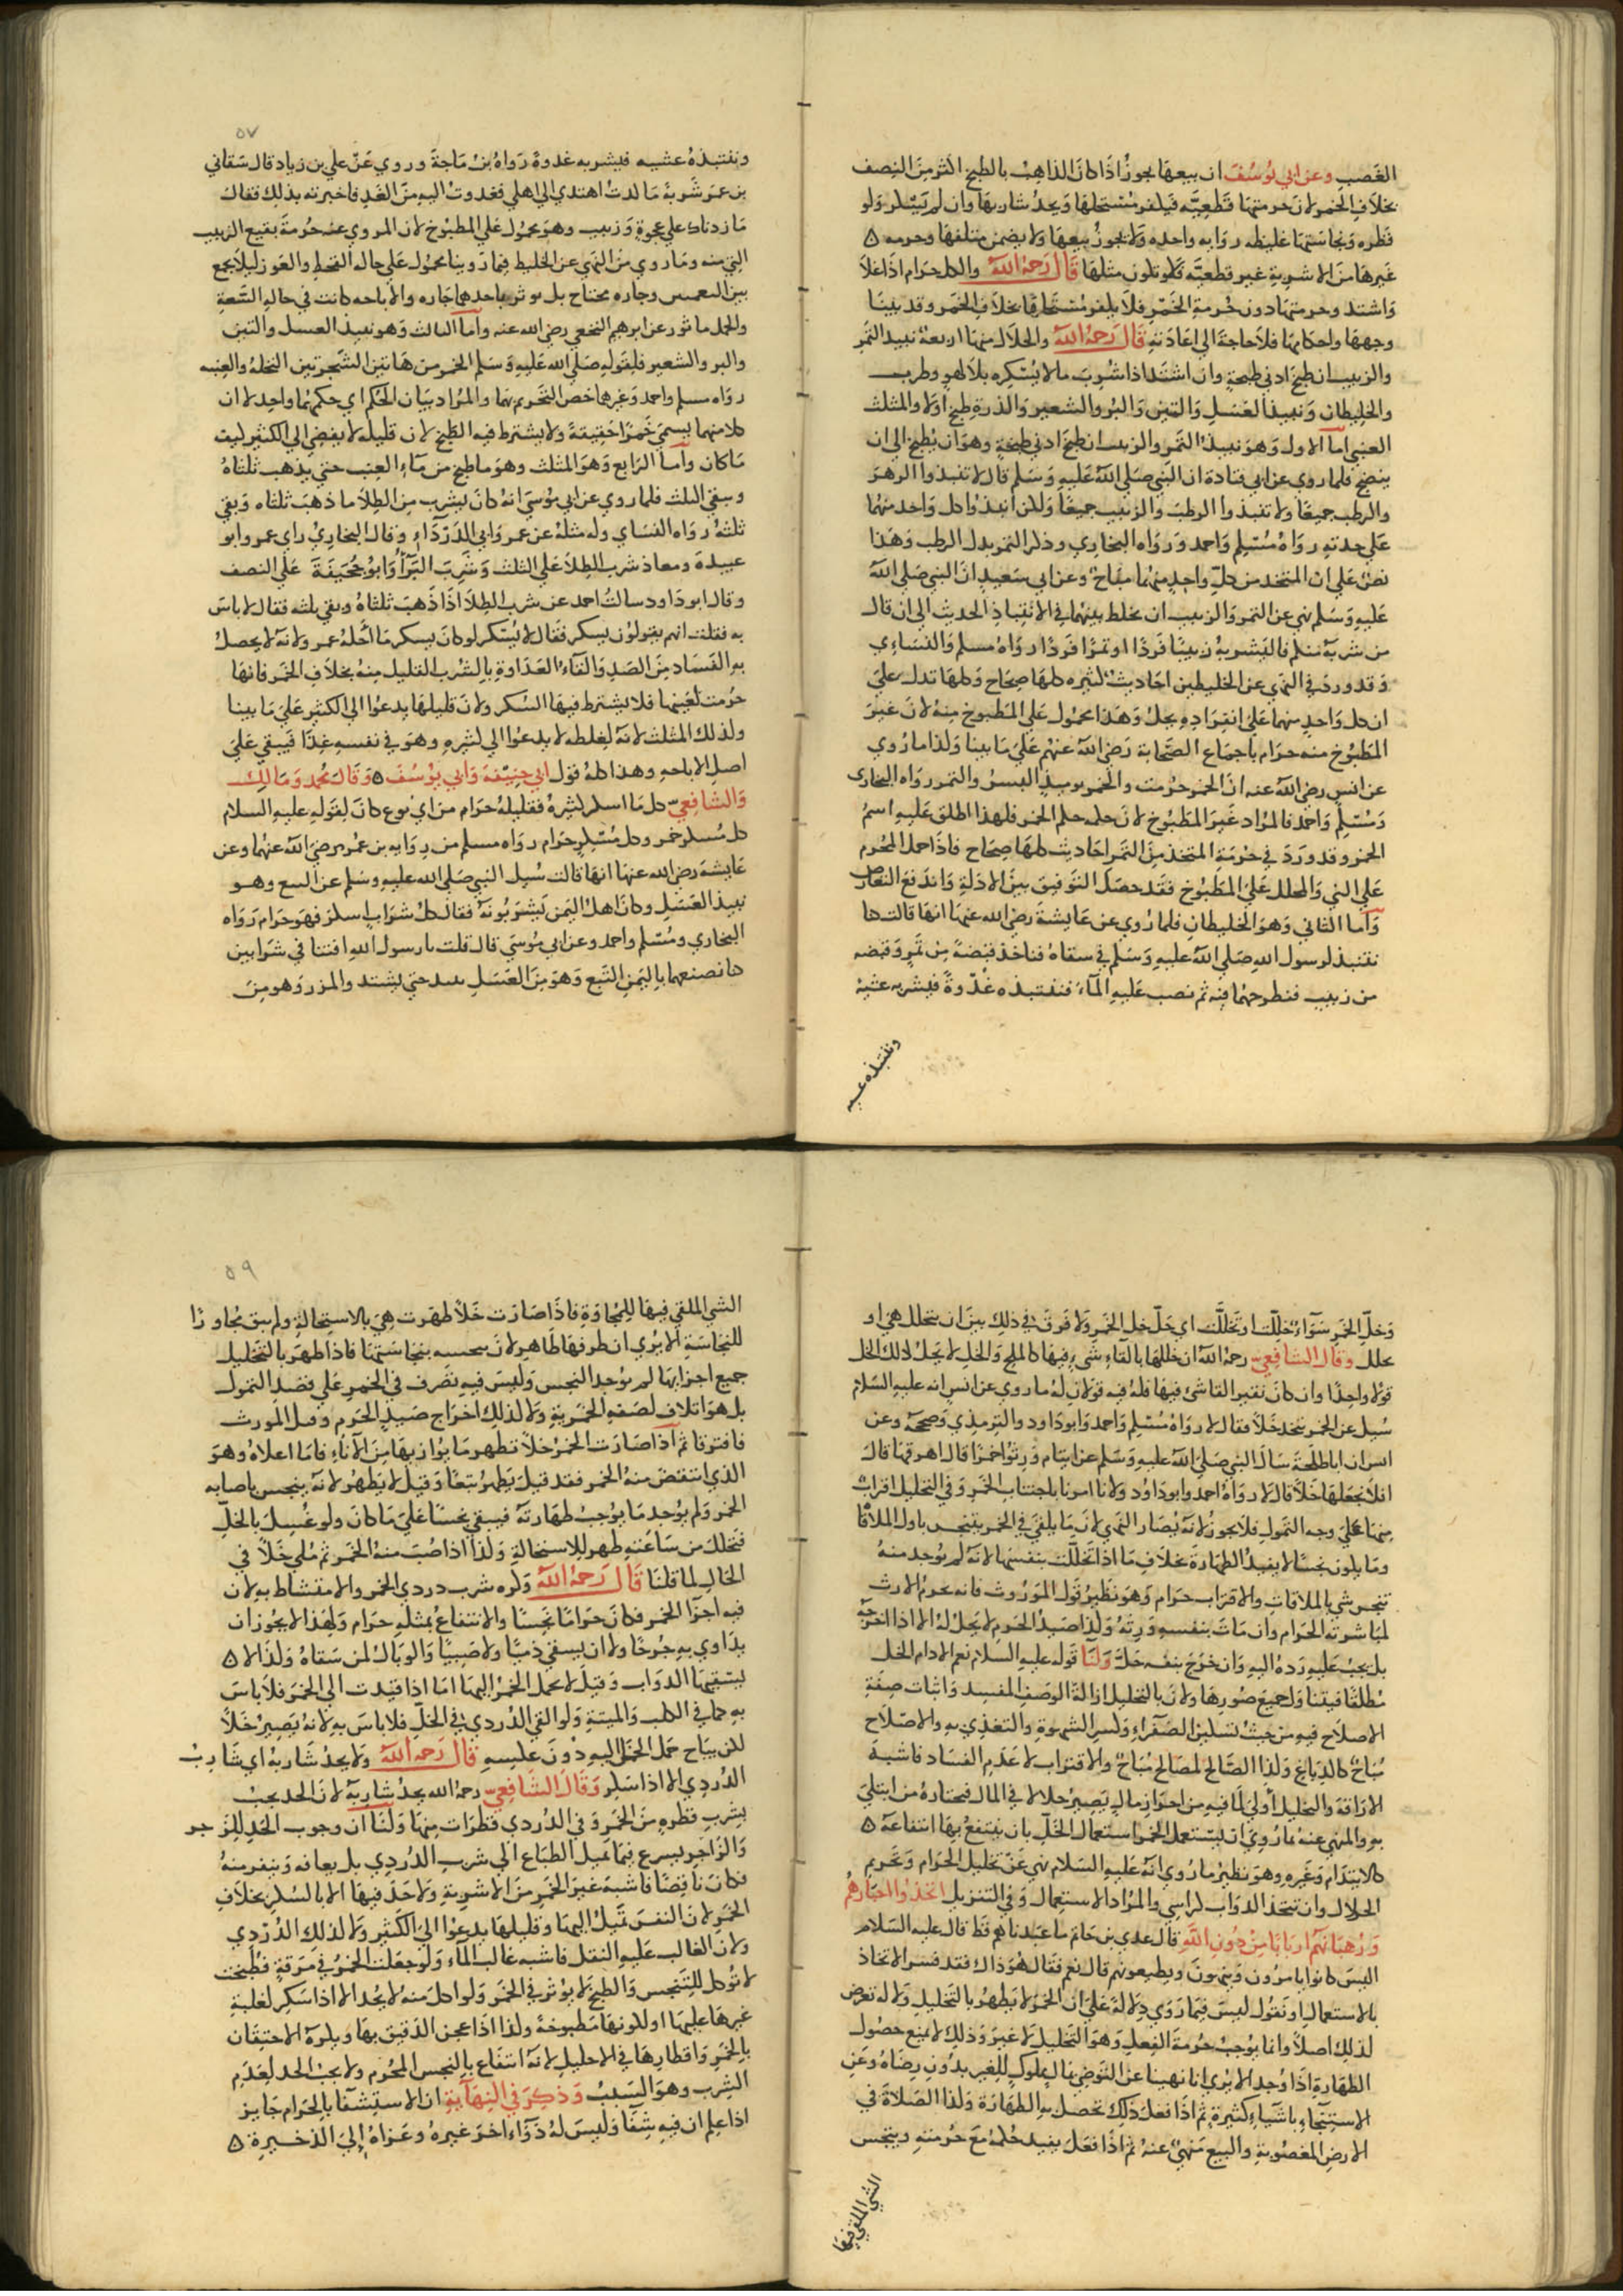 الغصب وعن ابي يوسف ان بيعها يجوز اذا كان الذاهب بالطبخ اكثر من النصف
بخلاف الخمر لان حرمتها قطعيه فيكفر مستحلها ويحد شاربها وان لم يسكر ولو
قطره ونجاستها غليظه روايه واحده ولا يجوز بيعها ولا يضمن متلفها وحرمه ه
غيرها من الاشربة غير قطعيه فلا يكون مثلها قال رحمه الله والكل حرام اذا غلا
واشتد وحرمتها دون حرمة الخمر فلا يكفر مستحلها بخلاف الخمر وقد بينا
وجهها واحكامها فلا حاجة الي اعادته قال رحمه الله والحلال منها اربعة نبيذ التمر
والزبيب ان طبخ ادني طبخة وان اشتد اذا شرب ما لا يسكره بلا لهو وطرب
والخليطان ونبيذ العسل والتين والبر والشعير والذرة طبخ او لا والمثلث
العنبي اما الاول وهو نبيذ التمر والزبيب ان طبخ ادني طبخة وهو ان يطبخ الي ان
ينضج فلما روي عن ابي قتادة ان النبي صلي الله عليه وسلم قال لا تنبذوا الزهو
والرطب جميعا ولا تنبذوا الرطب والزبيب جميعا ولكن انبذوا كل واحد منهما
علي حدته رواه مسلم واحمد ورواه البخاري وذكر التمر بدل الرطب وهذا
نص علي ان المتخذ من كل واحد منهما مباح وعن ابي سعيد ان النبي صلي الله
عليه وسلم نهي عن التمر والزبيب ان يخلط بينهما في الانتباذ الحديث الي ان قال
من شربه منكم فاليشربه زبيبا فردا او تمرا فردا رواه مسلم والنسائي
وقد ورد في النهي عن الخليطين احاديث كثيره كلها صحاح وكلها تدل علي
ان كل واحد منهما علي انفراده يحل وهذا محمول علي المطبوخ منه لان غير
المطبوخ منه حرام باجماع الصحابة رضي الله عنهم علي ما بينا ولذا ما روي
عن انس رضي الله عنه ان الخمر حرمت والخمر يوميذ البسر والتمر رواه البخاري
ومسلم واحمد فالمراد غير المطبوخ لان حكمه حكم الخمر فلهذا اطلق عليه اسم
الخمر وقد ورد في حرمة المتخذ من التمر احاديث كلها صحاح فاذا حمل المحرم
علي الني والمحلل علي المطبوخ فقد حصل التوفيق بين الادلة واندفع التعارض
واما الثاني وهو الخليطان فلما روي عن عايشة رضي الله عنها انها قالت كنا
ننتبذ لرسول الله صلي الله عليه وسلم في سقاه فناخذ قبضة من تمر وقبضه
من زبيب فنطرحهما فيه ثم نصب عليه الماء فننتبذه غدوة فيشربه عشية
وننتبذه عشيه
٥٧
وننتبذه عشيه فيشربه غدوة رواه بن ماجة وروي عن علي بن زياد قال سقاني
بن عمر شربة ما كدت اهتدي الي اهلي فغدوت اليه من الغد فاخبرته بذلك فقال
ما زدناك علي عجوة وزبيب وهو محمول علي المطبوخ لان المروي عنه حرمة نقيع الزبيب
الني منه وما روي من النهي عن الخليط فيما روينا محمول علي حالة القحط والعوز ليلا يجمع
بين النعمتين وجاره محتاج بل يوثر باحدهما جاره والاباحه كانت في حالة السعة
والحمل ماثور عن ابرهيم النخعي رضي الله عنه واما الثالث وهو نبيذ العسل والتين
والبر والشعير فلقوله صلي الله عليه وسلم الخمر من هاتين الشجرتين النخلة والعنبه
رواه مسلم واحمد وغيرهما خص التحريم بهما والمراد بيان الحكم اي حكمهما واحد لا ان
كلا منهما يسمي خمرا حقيقة ولا يشترط فيه الطبخ لان قليله لا يفضي الي الكثير كيف
ما كان واما الرابع وهو المثلث وهو ما طبخ من ماء العنب حتي يذهب ثلثاه
وبقي الثلث فلما روي عن ابي موسي انه كان يشرب من الطلا ما ذهب ثلثاه وبقي
ثلثه رواه النساي وله مثله عن عمر وابي الدرداء وقال البخاري راي عمر وابو
عبيدة ومعاذ شرب الطلا علي الثلث وشرب البرا وابو جحيفة علي النصف
وقال ابو داود سالت احمد عن شرب الطلا اذا ذهب ثلثاه وبقي ثلثه فقال لا باس
به فقلت انهم يقولون يسكر فقال لا يسكر لو كان يسكر ما احله عمر ولانه لا يحصل
به الفساد من الصد والقاء العداوة بالشرب القليل منه بخلاف الخمر فانها
حرمت لعينها فلا يشترط فيها السكر ولان قليلها يدعوا الي الكثير علي ما بينا
ولذلك المثلث لانه لغلظه لا يدعوا الي كثيره وهو في نفسه غذا فيبقي علي
اصل الاباحه وهذا كله قول ابي حنيفة وابي يوسف ه وقال محمد ومالك
والشافعي كل ما اسكر كثيره فقليله حرام من اي نوع كان لقوله عليه السلام
كل مسكر خمر وكل مسكر حرام رواه مسلم من رواية بن عمر رضي الله عنهما وعن
عايشة رضي الله عنها انها قالت سيل النبي صلي الله عليه وسلم عن البتع وهو
نبيذ العسل وكان اهل اليمن يشربونه فقال كل شراب اسكر فهو حرام رواه
البخاري ومسلم واحمد وعن ابي موسي قال قلت يارسول الله افتنا في شرابين
كنا نصنعهما باليمن التبع وهو من العسل ينبذ حتي يشتد والمزر وهو من
وخل الخمر سواء خللت او تخللت اي حل خل الخمر ولا فرق في ذلك بين ان يتخلل هي او
تخلل وقال الشافعي رحمه الله ان خللها بالقاء شيء فيها كالملح والخل لا يحل ذلك الخل
قولا واحدا وان كان بغير القا شيء فيها فله فيه قولان له ما روي عن انس انه عليه السلام
سيل عن الخمر تتخذ خلا فقال لا رواه مسلم واحمد وابو داود والترمذي وصححه وعن
انس ان ابا طلحة سال النبي صلي الله عليه وسلم عن ايتام ورثوا خمرا قال اهرقها قال
افلا نجعلها خلا قال لا رواه احمد وابو داود ولانا امرنا باجتناب الخمر وفي التخليل اقراب
منها علي وجه التمول فلا يجوز لانه يضار النهي لان ما يلقي في الخمر يتنجس باول الملاقا
وما يكون نجسا لا يفيد الطهارة بخلاف ما اذا تخللت بنفسها لانه لم يوجد منه
تنجس شي بالملاقات والاقتراب حرام وهو نظير قتل الموروث فانه يحرم الارث
لمباشرته الحرام وان مات بنفسه ورثه ولذا صيد الحرم لا يحل له الا اذا اخرجه
بل يجب عليه رده اليه وان خرج بنفسه حل ولنا قوله عليه السلام نعم الادام الخل
مطلقا فيتناول جميع صورها ولان بالتخليل ازالة الوصف المفسد واثبات صفة
الاصلاح فيه من حيث تسكين الصفراء وكسر الشهوة والتغذي به والاصلاح
مباح كالدباغ ولذا الصالح لمصالح مباح والاقتراب لاعدام الفساد فاشبه
الاراقة والتخليل اولي لما فيه من احراز مال يصير حلالا في المال فيختاره من ابتلي
به والمنهي عنه بما روي ان يستعمل الخمر استعمال الخل بان ينتفع بها انتفاعه ه
كالايتدام وغيره وهو نظير ما روي انه عليه السلام نهي عن تحليل الحرام وتحريم
الحلال وان تتخذ الدواب كراسي والمراد الاستعمال وفي التنزيل اتخذوا احبارهم
ورهبانهم اربابا من دون الله قال عدي بن حاتم ما عبدناهم قط قال عليه السلام
اليس كانوا يامرون وينهون ويطيعونهم قال نعم فقال هو ذاك فقد فسر الاتخاذ
بالاستعمال او نقول ليس فيما روي دلالة علي ان الخمر لا يطهر بالتخليل ولا له تعرض
لذلك اصلا وانما يوجب حرمة الفعل وهو التخليل لا غير وذلك لا يمنع حصول
الطهارة اذا وجد الا يري انا نهينا عن التوضي بما مملوك للغير بدون رضاه وعن
الاستنجاء باشياء كثيرة ثم اذا فعل ذلك تحصل به الطهارة ولذا الصلاة في
الارض المغصوبة والبيع منهي عنه ثم اذا فعل يفيد حكمه مع حرمته ويتنجس
الشي الملقي فيها
٥٩
الشي الملقي فيها للمجاوة فاذا صارت خلا طهرت هي بالاستحالة ولم يبق مجاورا
للنجاسة الا يري ان طرفها طاهر لان تنجسه بنجاستها فاذا طهر بالتخليل
جميع اجزايها لم يوجد النجس وليس فيه تصرف في الخمر علي قصد التمول
بل هو اتلاف لصفة الخمرية ولا لذلك اخراج صيد الحرم وقتل المورث
فافترقا ثم اذا صارت الخمر خلا تطهر ما يوازيها من الاناء فاما اعلاه وهو
الذي انتقص منه الخمر فقد قيل يطهر تبعا وقيل لا يطهر لانه يتنجس باصابه
الخمر ولم يوجد ما يوجب طهارته فيبقي نجسا علي ما كان ولو غسل بالخل
فتخلل من ساعته طهر للاستحالة ولذا اذا صب منه الخمر ثم ملي خلا في
الحال لما قلنا قال رحمه الله وكره شرب دردي الخمر والامتشاط به لان
فيه اجزا الخمر فكان حراما نجسا والانتفاع بمثله حرام ولهذا لا يجوز ان
يداوي به جرحا ولا ان يسقي ذميا ولا صبيا والوبال لمن سقاه ولذا لا ه
يسقيها الدواب وقيل لا يحمل الخمر اليها اما اذا قيدت الي الخمر فلا باس
به كما في الكلب والميتة ولو القي الدردي في الخل فلا باس به لانه يصير خلا
لكن يباح حمل الخل اليه دون عكسه قال رحمه الله ولا يحد شاربه اي شارب
الدردي الا اذا سكر وقال الشافعي رحمه الله يحد شاربه لان الحد يجب
بشرب قطره من الخمر وفي الدردي قطرات منها ولنا ان وجوب الحد للزجر
والزاجر يسرع فيما تميل الطباع الي شرب الدردي بل يعافه وينفر منه
فكان ناقصا فاشبه غير الخمر من الاشربة ولا حد فيها الا بالسكر بخلاف
الخمر لان النفس تميل اليها وقليلها يدعوا الي الكثير ولا لذلك الدردي
ولان الغالب عليه الثفل فاشبه غالب الماء ولو جعلت الخمر في مرقة فطبخت
لا تؤكل للتنجس والطبخ لا يوثر في الخمر ولو اكل منه لا يحد الا اذا سكر لغلبة
غيرها عليها او لكونها مطبوخة ولذا اذا عجن الدقيق بها ويكره الاحتقان
بالخمر واقطارها في الاحليل لانه انتفاع بالنجس المحرم ولا يجب الحد لعدم
الشرب وهو السبب وذكر في النهاية ان الاستشفا بالحرام جايز
اذا علم ان فيه شفا وليس له دواء اخر غيره وعزاه الي الذخيرة ه